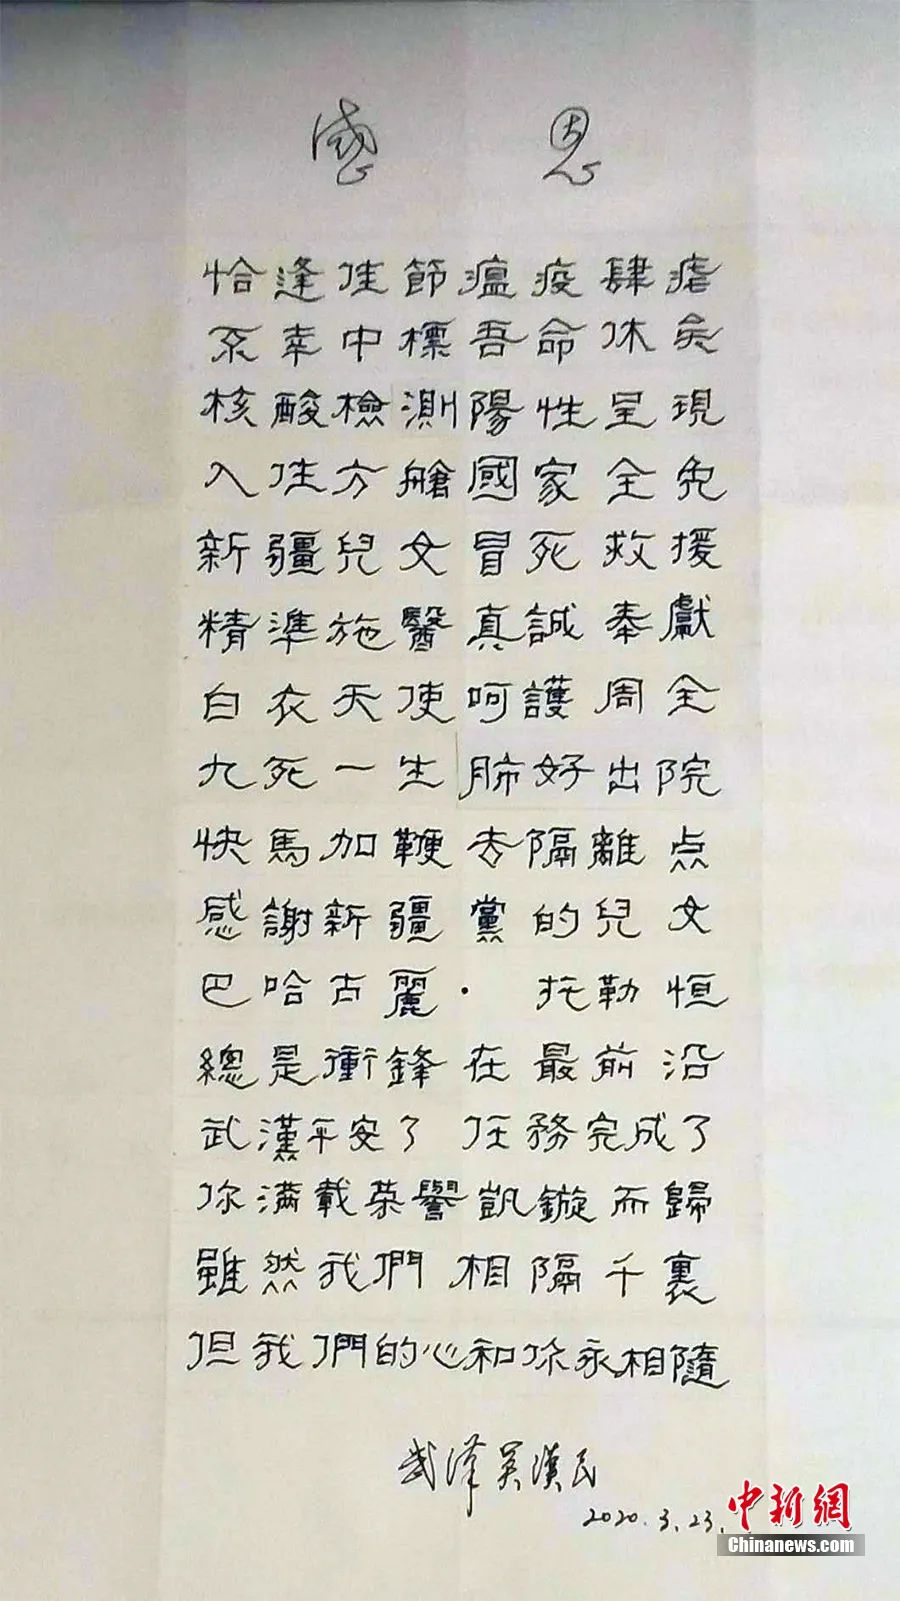 感恩
恰逢佳節瘟疫肆虐
不幸中標吾命休矣
核酸檢測陽性呈現
入住方艙國家全免
新疆兒女冒死救援
精準施醫真誠奉獻
白衣天使呵護周全
九死一生肺好出院
快馬加鞭去隔離点
感謝新疆黨的兒女
巴哈古麗·托勒恒
總是衝鋒在最前沿
武漢平安了 任務完成了
你满載荣譽凱鏇而歸
雖然我們相隔千裏
但我們的心和你永相隨
武漢吴漢民
2020.3.23.
中新網
Chinanews.com